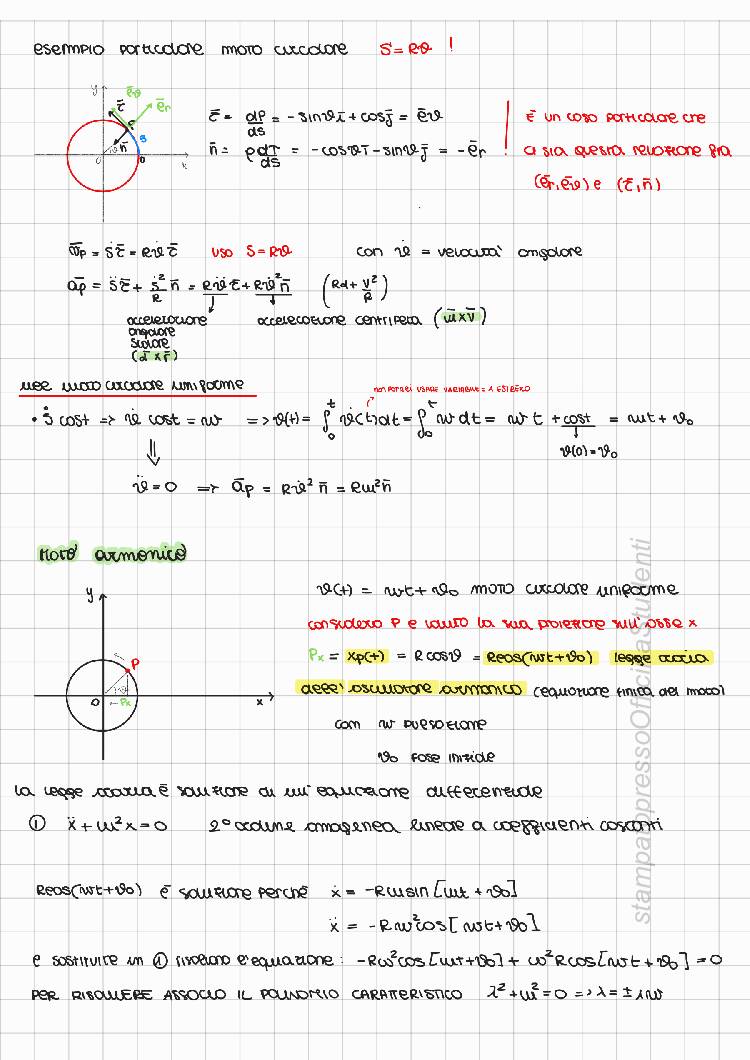 esempio particolare moto circolare S = Rϑ !
y
ēϑ
τ̄
ēr
P
S
n̄
ϑ
O
x
τ̄ = dP/ds = -sinϑ ī + cosϑ j̄ = ēϑ
n̄ = ρ dτ̄/ds = -cosϑ ī - sinϑ j̄ = -ēr
! È un caso particolare che
ci sia questa relazione fra
(ēr, ēϑ) e (τ̄, n̄)
v̄p = ṡ τ̄ = Rϑ̇ τ̄ uso S = Rϑ con ϑ̇ = velocità angolare
āp = s̈ τ̄ + ṡ²/R n̄ = Rϑ̈ τ̄ + Rϑ̇² n̄ (Rα + v²/R)
accelerazione
angolare
scalare
(ᾱ x r̄)
accelerazione centripeta (ω̄ x v̄)
nel moto circolare uniforme
non potrei usare variabile = a estremo
• ṡ cost => ϑ̇ cost = ω => ϑ(t) = ∫₀ᵗ ϑ̇(t)dt = ∫₀ᵗ ω dt = ω t + cost = ωt + ϑ₀
ϑ(0) = ϑ₀
⇓
ϑ̈ = 0 => āp = Rϑ̇² n̄ = Rω² n̄
Moto armonico
y
P
ϑ
O
Px
x
ϑ(t) = ωt + ϑ₀ moto circolare uniforme
considero P e valuto la sua proiezione sull'asse x
Px = xp(t) = R cosϑ = Rcos(ωt + ϑ₀) legge oraria
dell'oscillatore armonico (equazione finita del moto)
com ω pulsazione
ϑ₀ fase iniziale
La legge oraria è soluzione di un'equazione differenziale
① ẍ + ω²x = 0 2° ordine omogenea lineare a coefficienti costanti
Rcos(ωt + ϑ₀) è soluzione perché ẋ = -Rωsin[ωt + ϑ₀]
ẍ = -Rω²cos[ωt + ϑ₀]
e sostituite in ① risolvono l'equazione: -Rω²cos[ωt + ϑ₀] + ω²Rcos[ωt + ϑ₀] = 0
PER RISOLVERE ASSOCIO IL POLINOMIO CARATTERISTICO λ² + ω² = 0 => λ = ± iω
stampatopressoOfficinaStudenti